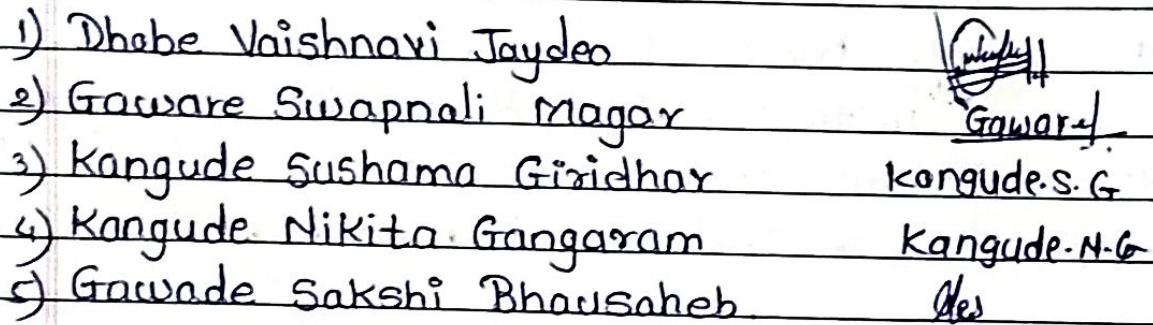 1) Dhabe Vaishnavi Jaydeo
2) Gaware Swapnali Magar Gaware
3) Kangude Sushama Giridhar Kangude.S.G
4) Kangude Nikita Gangaram Kangude.N.G
5) Gawade Sakshi Bhausaheb